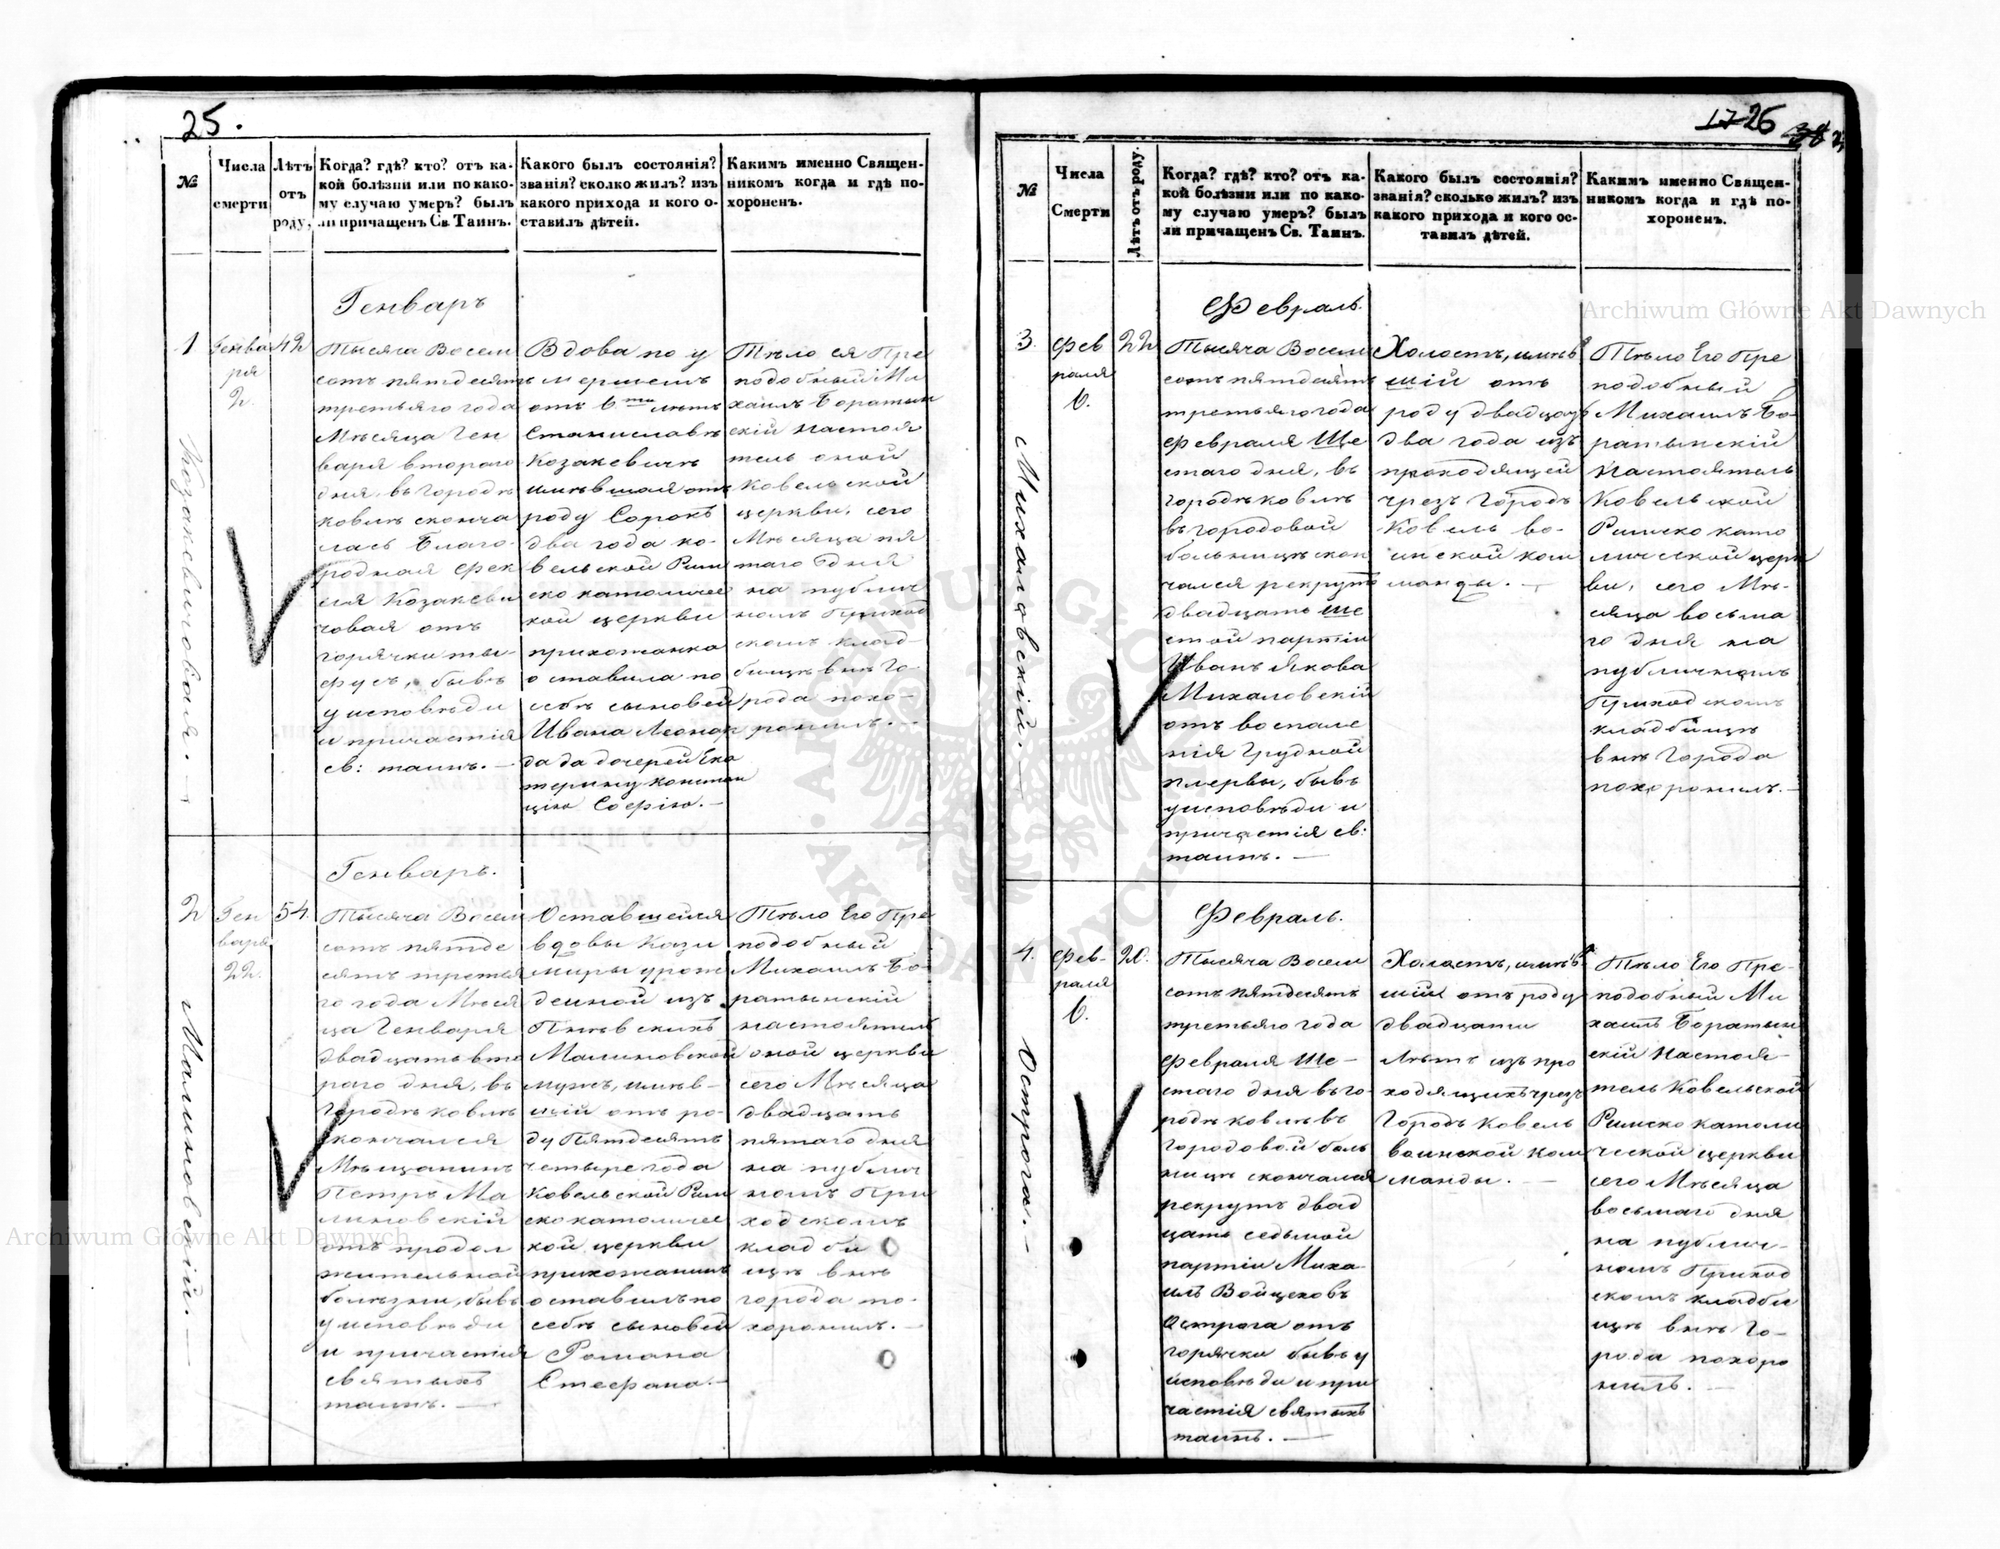 25.
№
Числа
смерти
Лѣтъ
отъ
роду.
Когда? гдѣ? кто? отъ ка-
кой болѣзни или по како-
му случаю умеръ? былъ
ли причащенъ Св. Таинъ.
Какого былъ состоянія?
званія? сколко жилъ? изъ
какого прихода и кого о-
ставилъ дѣтей.
Какимъ именно Священ-
никомъ когда и гдѣ по-
хороненъ.
1
Генва
ря
2.
42
Козакевичовая. —
Генваръ
Тысяча Восем
сотъ пятдесятъ
третьяго года
Мѣсяца Ген
варя втораго
дня, въ городѣ
Ковлѣ сконча
лась Благо-
родная Фек
ля Козакеви
човая отъ
горячки ты-
фусъ, бывъ
у исповѣди
и причастія
св: таинъ. —
Вдова по у
мершемъ
отъ 6ти лѣтъ
Станиславѣ
Козакевичѣ
имѣвшая отъ
роду Сорокъ
два года ко-
вельской Рим
ско католичес
кой церкви
прихожанка
оставила по
себѣ сыновей
Ивана Леонар
да да дочерей Ека
терину Констан
цію Софію. —
Тѣло ея Пре
подобный Ми
хаилъ Боратын
скій настоя
тель оной
Ковельской
церкви, сего
Мѣсяца пя
таго дня
на публич
номъ Приход
скомъ клад-
бищѣ внѣ го-
рода похо-
ронилъ. —
2
Ген
варя
22.
54.
Малиновскій. —
Генваръ.
Тысяча Восем
сотъ пятде
сятъ третья
го года Мѣся
ца Генваря
двадцать вто
раго дня, въ
городѣ Ковлѣ
скончался
Мѣщанинъ
Петръ Ма
линовскій
отъ продол
жительной
болѣзни, бывъ
у исповѣди
и причастія
святыхъ
таинъ. —
Оставшейся
вдовы Кази
миры урож
денной изъ
Пнѣвскихъ
Малиновской
мужъ, имѣв-
шій отъ ро-
ду Пятдесятъ
четыре года
Ковельской Рим
ско католичес
кой церкви
прихожанинъ
оставилъ по
себѣ сыновей
Романа
Стефана. —
Тѣло Его Пре
подобный
Михаилъ Бо-
ратынскій
настоятель
оной церкви
сего Мѣсяца
двадцать
пятаго дня
на публич
номъ При
ходскомъ
кладби
щѣ внѣ
города по-
хоронилъ. —
17 26
№
Числа
Смерти
Лѣтъ отъ роду.
Когда? гдѣ? кто? отъ ка-
кой болѣзни или по како-
му случаю умеръ? былъ
ли причащенъ Св. Таинъ.
Какого былъ состоянія?
званія? сколько жилъ? изъ
какого прихода и кого ос-
тавилъ дѣтей.
Какимъ именно Священ-
никомъ когда и гдѣ по-
хороненъ.
3.
Фев
раля
6.
22
Михаловскій. —
Февраль.
Тысяча Восем
сотъ пятдесятъ
третьяго года
Февраля Ше
стаго дня, въ
городѣ Ковлѣ
въ городовой
больницѣ скон
чался рекрутъ
двадцать ше
стой партіи
Иванъ Якова
Михаловскій
отъ воспале
нія грудной
плервы, бывъ
у исповѣди и
причастія св:
таинъ. —
Холостъ, имѣв
шій отъ
роду двадцать
два года изъ
проходящей
чрезъ городъ
Ковель во-
инской ком
манды. —
Тѣло Его Пре
подобный
Михаилъ Бо-
ратынскій
Настоятель
Ковельской
Римско като
лической церк
ви, сего Мѣ-
сяца восьма
го дня на
публичномъ
Приходскомъ
кладбищѣ
внѣ города
похоронилъ. —
4.
Фев-
раля
6.
20.
Острога. —
Февраль.
Тысяча Восем
сотъ пятдесятъ
третьяго года
Февраля Ше-
стаго дня въ го-
родѣ Ковлѣ въ
городовой боль
ницѣ скончался
рекрутъ двад
цать седьмой
партіи Миха
илъ Войцеховъ
Острога отъ
горячки бывъ у
исповѣди и при
частія святыхъ
таинъ. —
Холостъ, имѣв
шій отъ роду
двадцати
лѣтъ изъ про
ходящихъ чрезъ
городъ Ковель
воинской ком
манды. —
Тѣло Его Пре-
подобный Ми
хаилъ Боратын
скій Настоя-
тель Ковельской
Римско католи
ческой церкви
сего Мѣсяца
восьмаго дня
на публич-
номъ Приход
скомъ кладби
щѣ внѣ го-
рода похоро
нилъ. —
Archiwum Główne Akt Dawnych
Archiwum Główne Akt Dawnych